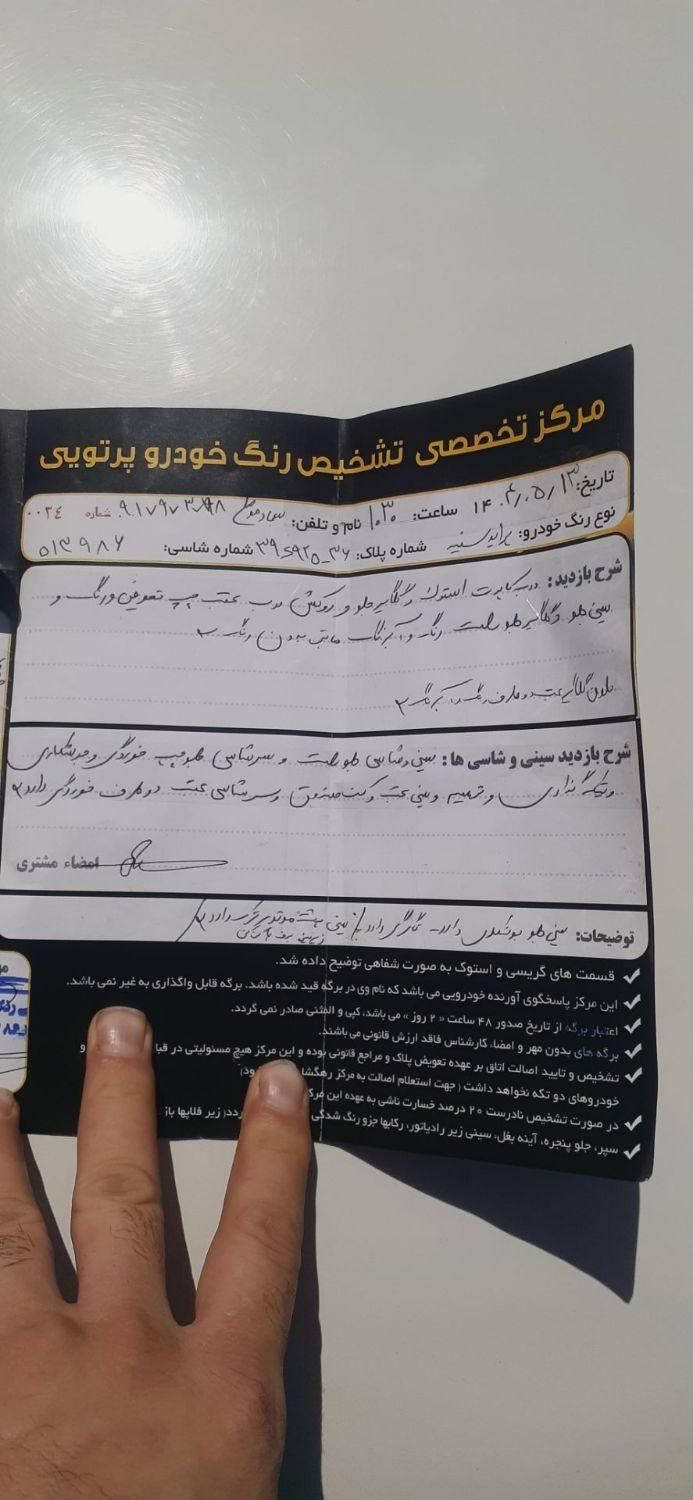 مرکز تخصصی تشخیص رنگ خودرو پرتویی
تاریخ: ۱۴۰۴/۰۵/۱۳ ساعت: ۱۰:۳۰ نام و تلفن: شماره ۰۰۲۴
نوع رنگ خودرو: پراید سفید شماره پلاک: شماره شاسی: ۵۱۳۹۸۶
شرح بازدید: درب کاپوت استوک و گلگیر جلو و روکش درب عقب چپ تعویض و رنگ و
سینی جلو و گلگیر جلو راست رنگ و آبرنگ مابقی بدون رنگ
ستون گلگیر عقب دو طرف رنگ و آبرنگ
شرح بازدید سینی و شاسی ها: سینی و شاسی جلو راست و سرشاسی جلو چپ خوردگی و جوشکاری
و رنگ گذاری و ترمیم و سینی عقب و کف صندوق و سرشاسی عقب دو طرف خوردگی دارد
امضاء مشتری
توضیحات: سینی جلو جوشکاری دارد - تگرگی دارد / سینی پشت موتور ترک دارد
✓ قسمت های گریسی و استوک به صورت شفاهی توضیح داده شد.
✓ این مرکز پاسخگوی آورنده خودرویی می باشد که نام وی در برگه قید شده باشد. برگه قابل واگذاری به غیر نمی باشد.
✓ اعتبار برگه از تاریخ صدور ۴۸ ساعت « ۲ روز » می باشد، کپی و المثنی صادر نمی گردد.
✓ برگه های بدون مهر و امضاء کارشناس فاقد ارزش قانونی می باشند.
✓ تشخیص و تایید اصالت اتاق بر عهده تعویض پلاک و مراجع قانونی بوده و این مرکز هیچ مسئولیتی در قبا و
خودروهای دو تکه نخواهد داشت ( جهت استعلام اصالت به مرکز رهگشا ود)
✓ در صورت تشخیص نادرست ۲۰ درصد خسارت ناشی به عهده این مرک
✓ سپر، جلو پنجره، آینه بغل، سینی زیر رادیاتور، رکابها جزو رنگ شدگی ردد( زیر فلاپها باز